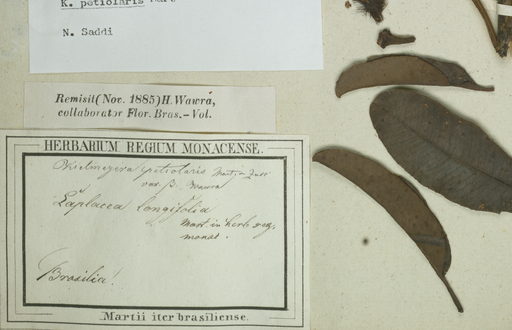 K. petiolaris Mart
N. Saddi
Remisit (Nov. 1885) H. Wawra,
collaborator Flor. Bras.-Vol.
HERBARIUM REGIUM MONACENSE.
Kielmeyera petiolaris Mart. & Zucc
var. β. Wawra
Laplacea longifolia
Mart. in herb. reg.
monat.
Brasilia.
Martii iter brasiliense.